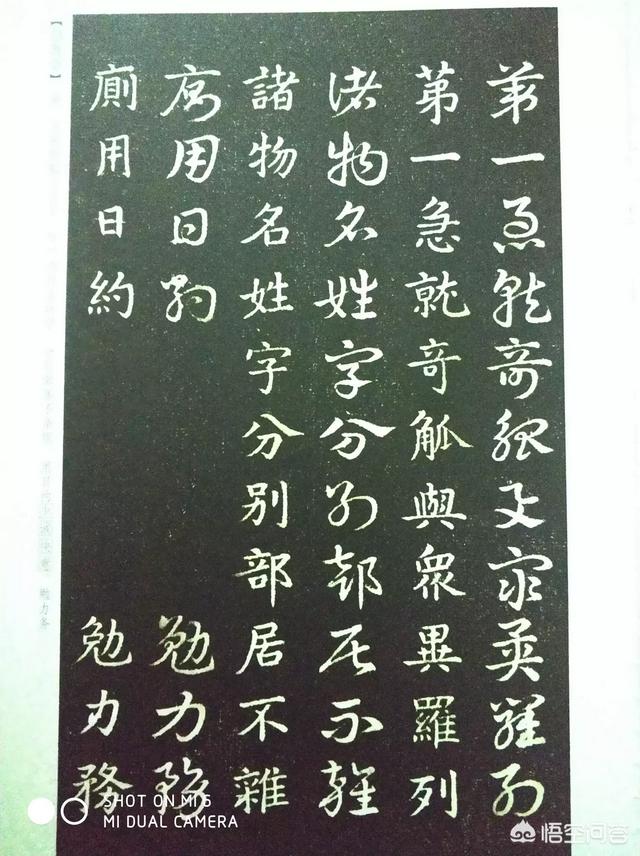 第一急就奇觚與眾異羅列
第一急就奇觚與眾異羅列
諸物名姓字分別部居不雜
諸物名姓字分別部居不雜
廁用日約 勉力務
廁用日約 勉力務
SHOT ON MI 6
MI DUAL CAMERA
悟空问答